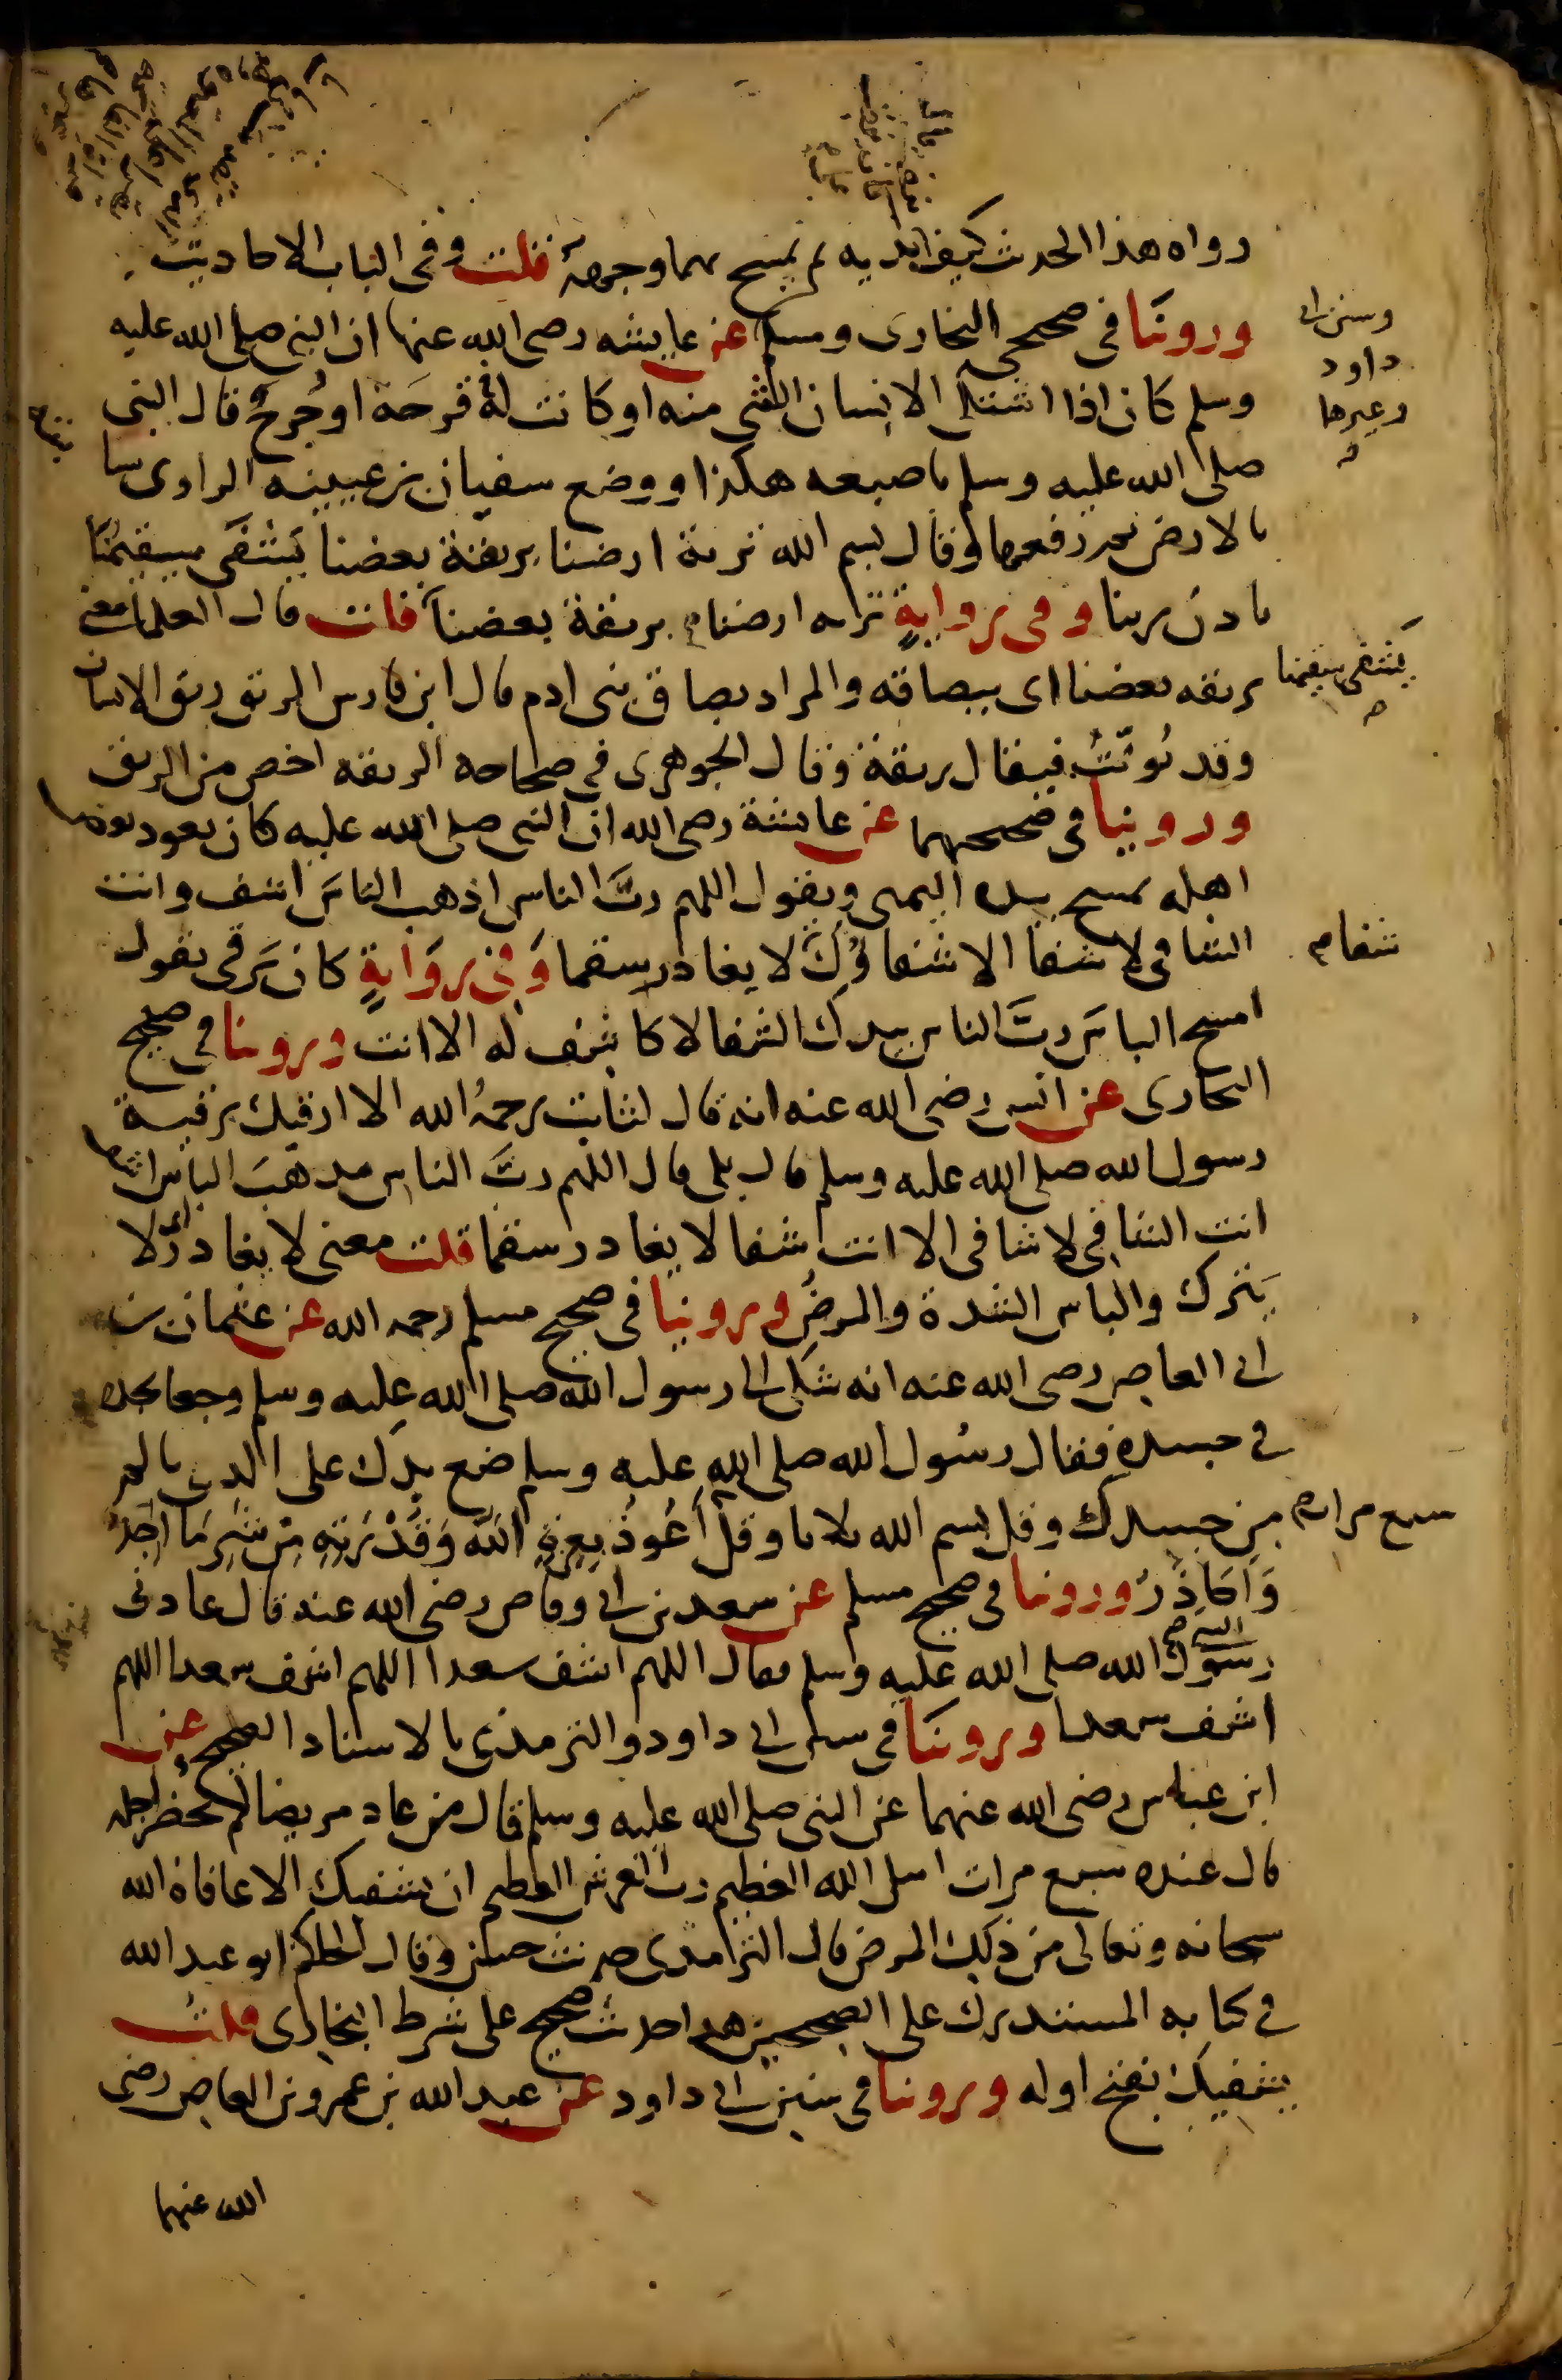 رواه هذا الحديث كيف يديه ثم يمسح بهما وجهه قلت وفى الباب الاحاديث
وروينا فى صحيحى البخارى ومسلم عن عايشه رضى الله عنها ان النبى صلى الله عليه
وسنن ابى
داود
وغيرها
وسلم كان اذا اشتكى الانسان الشى منه او كانت له قرحة او جُرح قال النبى
صلى الله عليه وسلم باصبعه هكذا ووضع سفيان بن عيينه الراوى سبا
بالارض ثم رفعها وقال بسم الله تربة ارضنا بريقة بعضنا يشفى سقيمنا
باذن ربنا وفى رواية تربه ارضنا بريقة بعضنا قلت قال العلما معنى
يُشفى سقيمنا
بريقه بعضنا اى ببصاقه والمراد بصاق بنى ادم قال ابن فارس الريق ريق الانسان
وقد يُونّثُ فيقال ريقة وقال الجوهرى فى صحاحه الريقه اخص من الريق
وروينا فى صحيحهما عن عايشة رضى الله ان النبى صلى الله عليه كان يعود بعض
اهله يمسح بيده اليمنى ويقول اللهم ربَّ الناس اذهب الباسَ اشف وانت
الشافى لا شفا الا شفاؤُكَ لا يغادر سقما وَفى رِوَايةٍ كان يَرقى يقول
شفا
امسح الباسَ ربَّ الناس بيدك الشفا لا كاشف له الا انت وروينا فى صحيح
البخارى عن انس رضى الله عنه انه قال لثابت رحمهُ الله الا ارقيك برقية
رسول الله صلى الله عليه وسلم قال بلى قال اللهم ربَّ الناس مذهبَ الباس اشف
انت الشافى لا شافى الا انت شفا لا يغادر سقما قلت معنى لا يغادر اى لا
يَترك والباس الشدة والمرضُ وروينا فى صحيح مسلم رحمه الله عن عثمان بن
ابى العاص رضى الله عنه انه شكى الى رسول الله صلى الله عليه وسلم وجعا يجده
فى جسده فقال رسُول الله صلى الله عليه وسلم ضع يدك على الذى يالم
من جسدك وقل بسم الله ثلاثا وقل أَعُوذُ بِعِزةِ اللهِ وَقُدْرَتِهِ مِن شَرِ مَا أَجِدُ
سبع مرات
وَاُحَاذِرُ وروينا فى صحيح مسلم عن سعد بن ابى وقاص رضى الله عنه قال عادنى
النبى
رسُولُ الله صلى الله عليه وسلم فقال اللهم اشف سعدا اللهم اشف سعدا اللهم
اشف سعدا وروينَا فى سنن ابى داود والترمذى بالاسناد الصحيح عن
ابن عباس رضى الله عنهما عن النبى صلى الله عليه وسلم قال من عاد مريضا لم يحضر اجله
قال عنده سبع مرات اسل الله العظيم ربَّ العرش العظيم ان يشفيك الا عافاه الله
سبحانه وتعالى من ذلك المرض قال الترمذى حديث حسن وقال الحاكم ابو عبد الله
فى كتابه المستدرك على الصحيحين هذا حديث صحيح على شرط البخارى قلتُ
يشفيكَ بفتح اوله وروينا فى سنن ابى داود عن عبد الله بن عمرو بن العاص رضى
الله عنهما